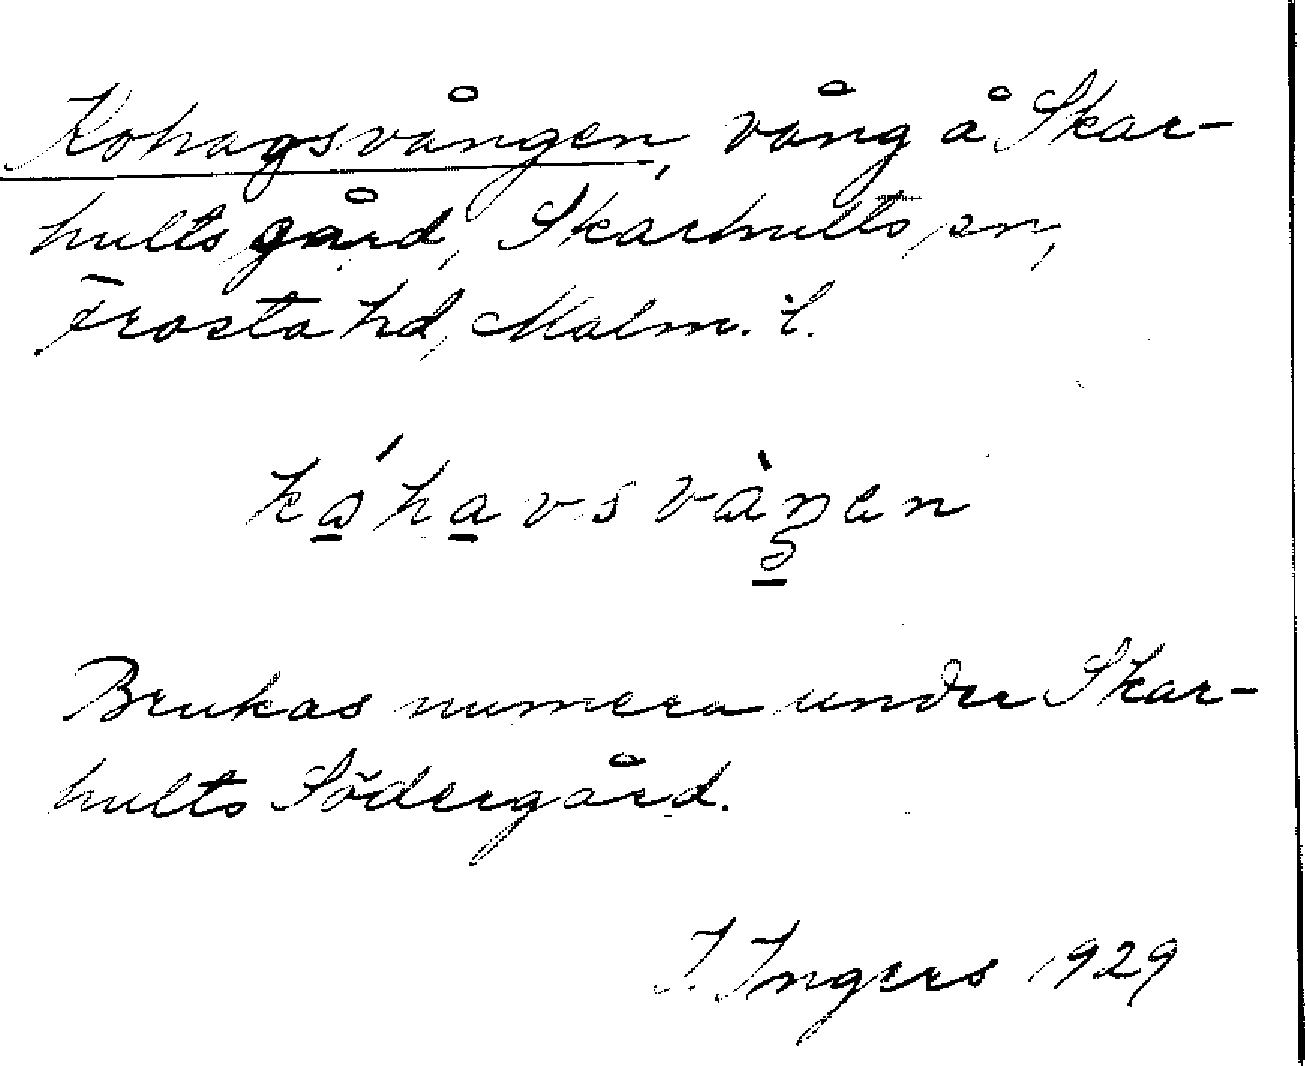 Kohagsvången, vång å Skar-
hults gård, Skarhults sn,
Frosta hd, Malm. l.
kåhavsvàŋen
Brukas numera under Skar-
hults Södergård.
I. Ingers 1929